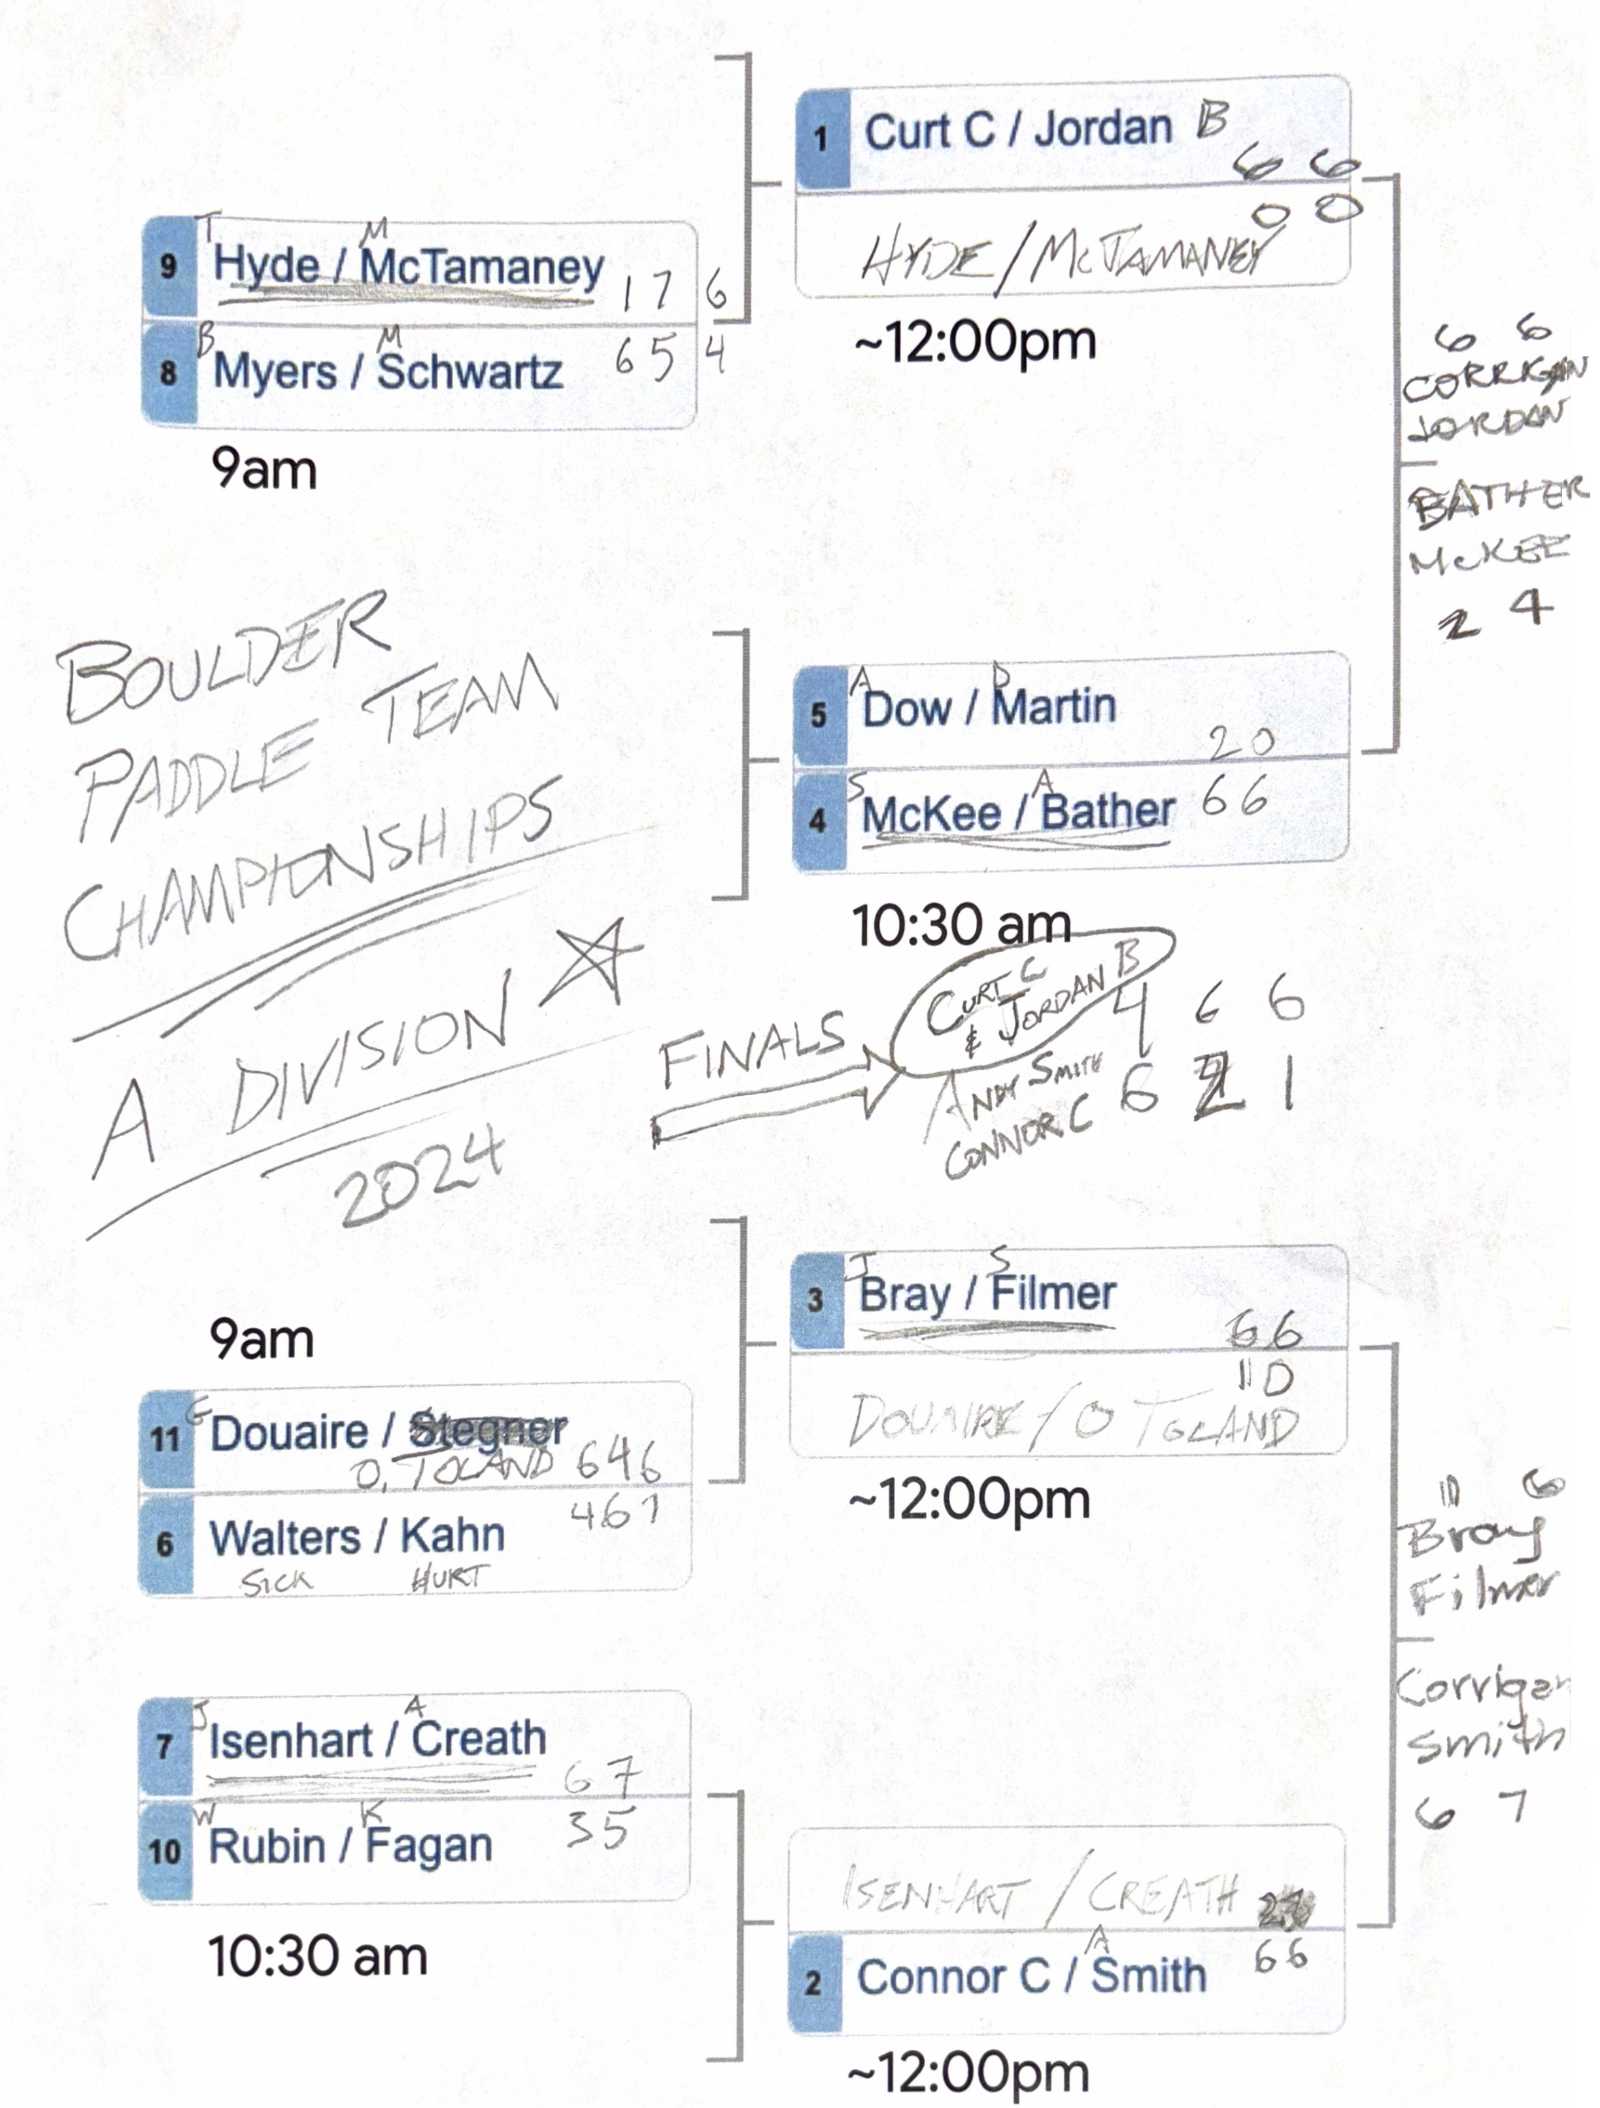 1 Curt C / Jordan B
6 6
0 0
HYDE / McTAMANEY
~12:00pm
T M
9 Hyde / McTamaney 1 7 6
B M
8 Myers / Schwartz 6 5 4
9am
6 6
CORRIGAN
JORDAN
BATHER
McKEE
2 4
BOULDER
PADDLE TEAM
CHAMPIONSHIPS
A DIVISION
2024
A D
5 Dow / Martin
2 0
S A
4 McKee / Bather 6 6
10:30 am
FINALS
CURT C
& JORDAN B 4 6 6
ANDY SMITH 6 2 1
CONNOR C
J S
3 Bray / Filmer
6 6
1 0
DOUAIRE / O TOLAND
~12:00pm
9am
11 Douaire / Stegner
O. TOLAND 6 4 6
4 6 1
6 Walters / Kahn
SICK HURT
6
Bray
Filmer
Corrigan
Smith
6 7
J A
7 Isenhart / Creath
6 7
W K 3 5
10 Rubin / Fagan
10:30 am
ISENHART / CREATH
A 6 6
2 Connor C / Smith
~12:00pm